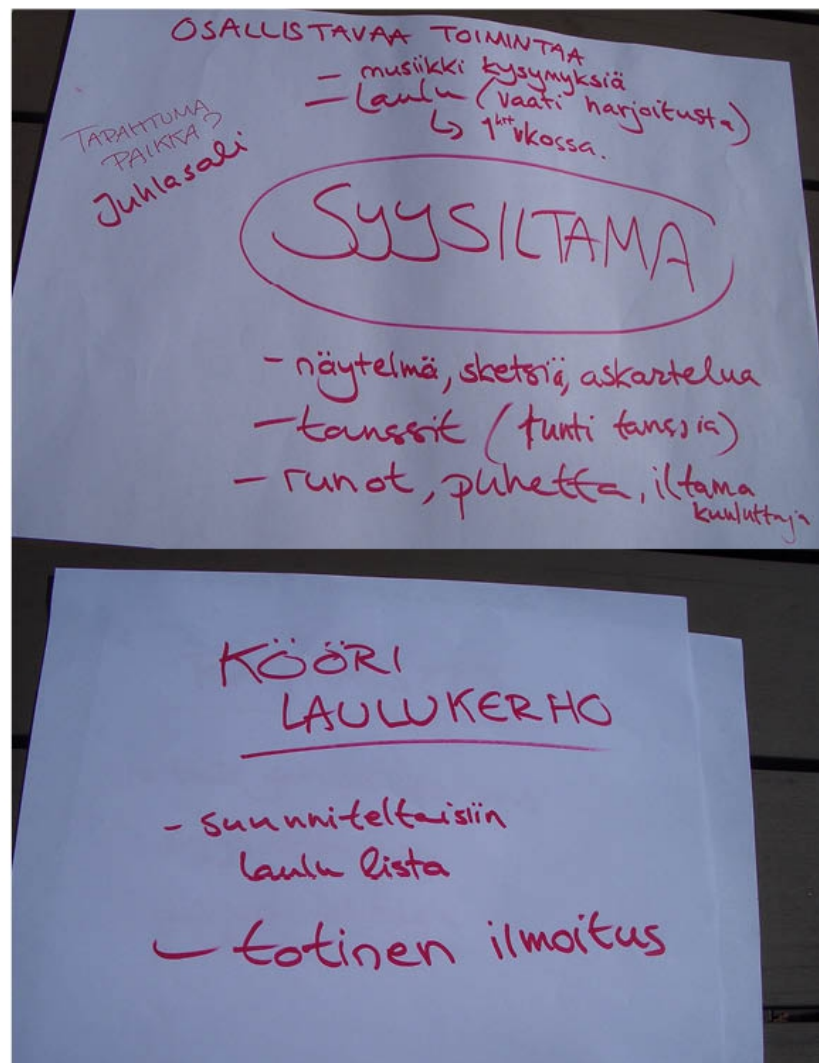 OSALLISTAVAA TOIMINTAA
- musiikki kysymyksiä
- Laulu (vaati harjoitusta)
↳ 1krt vkossa.
TAPAHTUMA
PAIKKA?
Juhlasali
SYYSILTAMA
- näytelmä, sketsiä, askartelua
- tanssit (tunti tanssia)
- runot, puhetta, iltama
kuuluttaja
KÖÖRI
LAULUKERHO
- suunniteltaisiin
laulu lista
- totinen ilmoitus